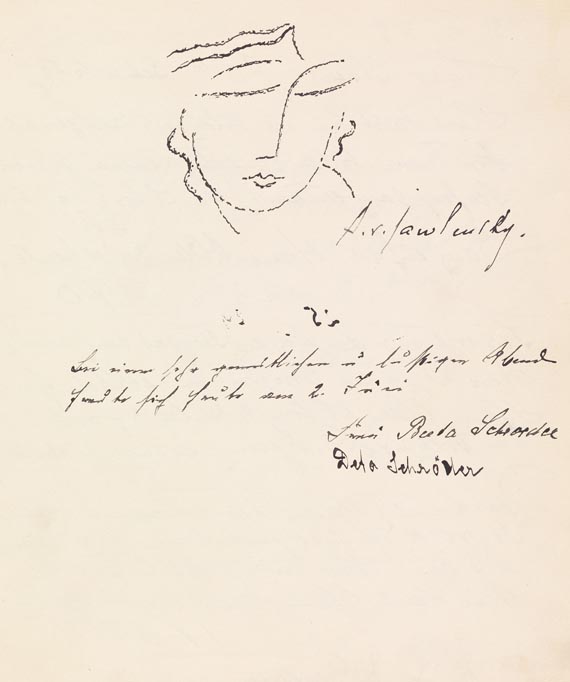 A. v. Jawlensky.
Bei einem sehr gemütlichen u lustigen Abend
freute sich heute am 2. Juni
Frau Beeda Schroeder
Deta Schröder